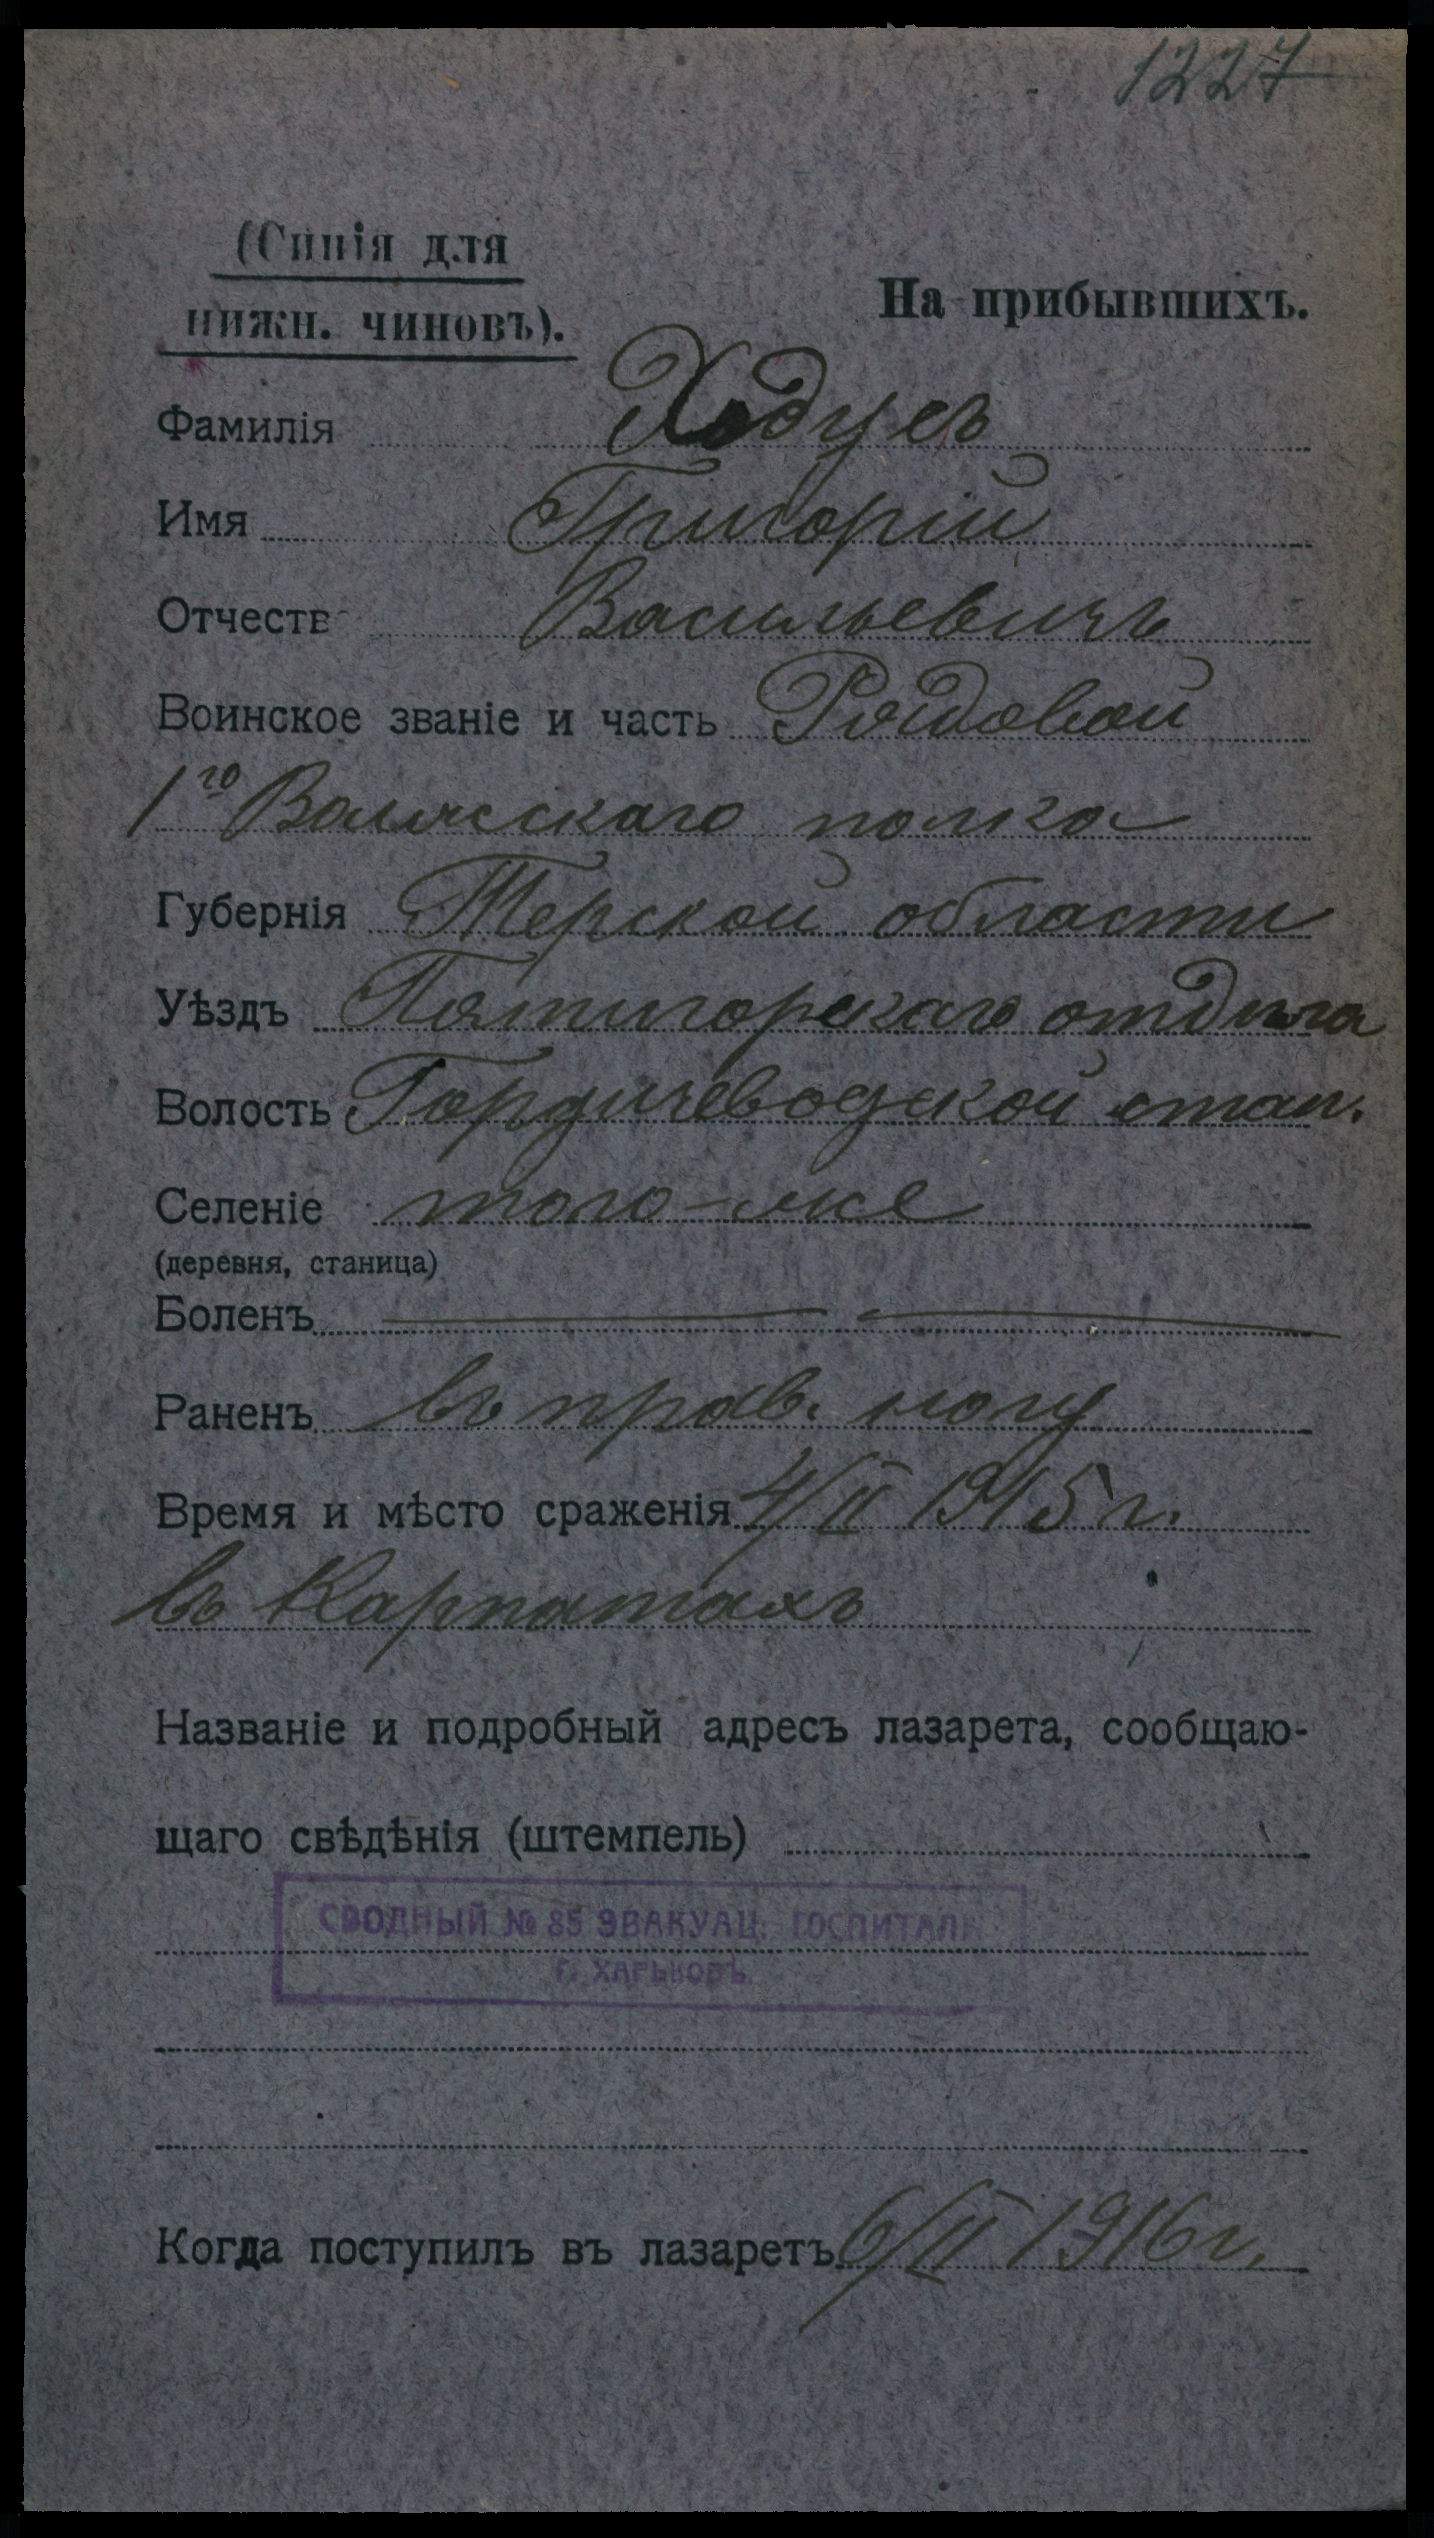 1227
(Синія для
нижн. чиновъ).
На прибывшихъ.
Фамилія Ходусъ
Имя Григорій
Отчеств Васильевичъ
Воинское званіе и часть Рядовой
1го Волжскаго полка
Губернія Терской области
Уѣздъ Пятигорскаго отдѣла
Волость Горячеводской стан.
Селеніе того-же
(деревня, станица)
Боленъ
Раненъ въ прав. ногу
Время и мѣсто сраженія 4/II 1915 г.
въ Карпатахъ
Названіе и подробный адресъ лазарета, сообщаю-
щаго свѣдѣнія (штемпель)
СВОДНЫЙ № 85 ЭВАКУАЦ. ГОСПИТАЛЬ
Г. ХАРЬКОВЪ.
Когда поступилъ въ лазаретъ 6/II 1916 г.